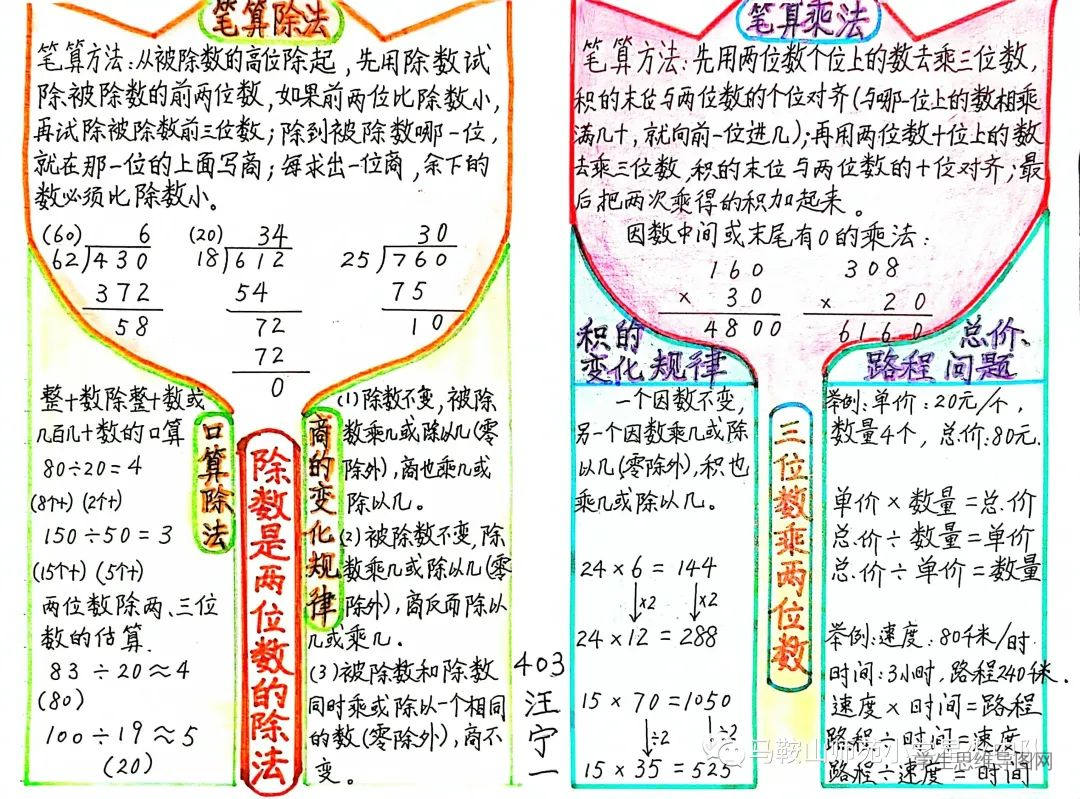 笔算除法
笔算方法:从被除数的高位除起,先用除数试
除被除数的前两位数,如果前两位比除数小,
再试除被除数前三位数;除到被除数哪一位,
就在那一位的上面写商;每求出一位商,余下的
数必须比除数小。
(60) 6
62)430
372
58
(20) 34
18)612
54
72
72
0
30
25)760
75
10
整十数除整十数或
几百几十数的口算
80÷20=4
(8个十) (2个十)
150÷50=3
(15个十) (5个十)
两位数除两、三位
数的估算.
83÷20≈4
(80)
100÷19≈5
(20)
口算除法
除数是两位数的除法
商的变化规律
(1)除数不变,被除
数乘几或除以几(零
除外),商也乘几或
除以几。
(2)被除数不变,除
数乘几或除以几(零
除外),商反而除以
几或乘几。
(3)被除数和除数
同时乘或除以一个相同
的数(零除外),商不
变。
403
汪
宁
一
笔算乘法
笔算方法:先用两位数个位上的数去乘三位数,
积的末位与两位数的个位对齐(与哪一位上的数相乘
满几十,就向前一位进几);再用两位数十位上的数
去乘三位数,积的末位与两位数的十位对齐;最
后把两次乘得的积加起来。
因数中间或末尾有0的乘法:
160
× 30
4800
308
× 20
6160
积的
变化规律
一个因数不变,
另一个因数乘几或除
以几(零除外),积也
乘几或除以几。
24×6=144
↓×2 ↓×2
24×12=288
15×70=1050
↓÷2 ↓÷2
15×35=525
三位数乘两位数
总价、
路程问题
举例:单价:20元/个,
数量4个,总价:80元.
单价×数量=总价
总价÷数量=单价
总价÷单价=数量
举例:速度:80千米/时.
时间:3小时,路程240千米.
速度×时间=路程
路程÷时间=速度
路程÷速度=时间
学生思维草图网